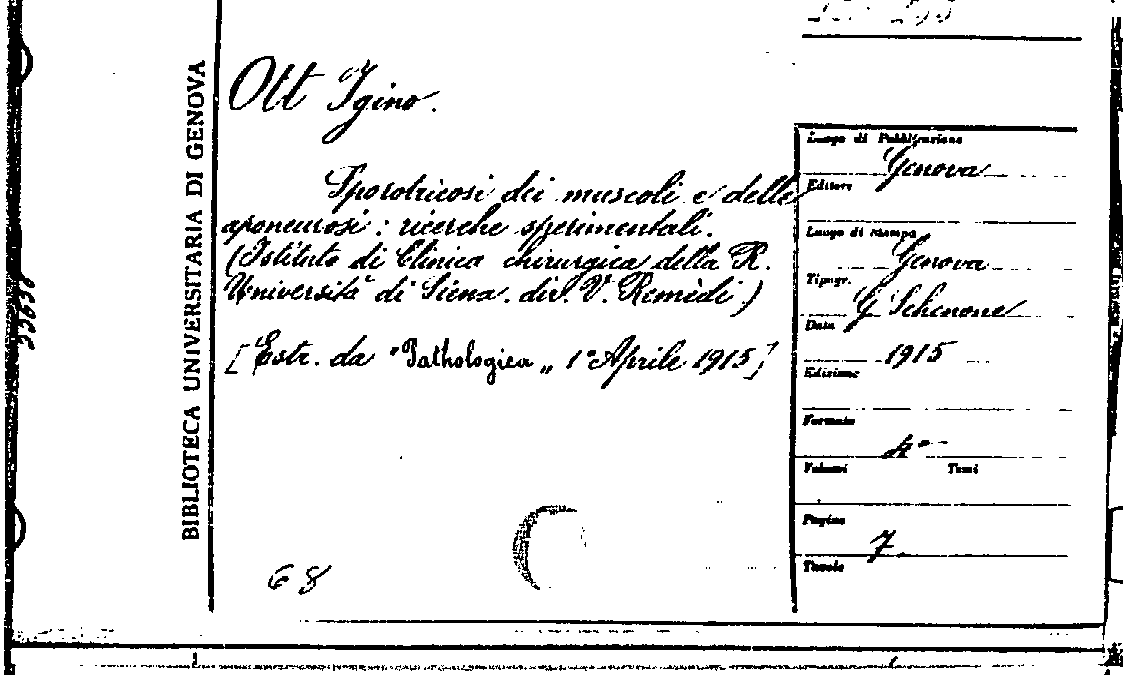 BIBLIOTECA UNIVERSITARIA DI GENOVA
Ott Igino.
Sporotricosi dei muscoli e delle
aponeurosi: ricerche sperimentali.
(Istituto di Clinica chirurgica della R.
Università di Siena. dir. V. Remèdi)
[Estr. da "Pathologica„ 1° Aprile 1915]
68
Luogo di Pubblicazione
Genova
Editore
Luogo di stampa
Genova
Tipogr.
G Schenone
Data
1915
Edizione
Formato
4°
Volumi Tomi
Pagine
7.
Tavole